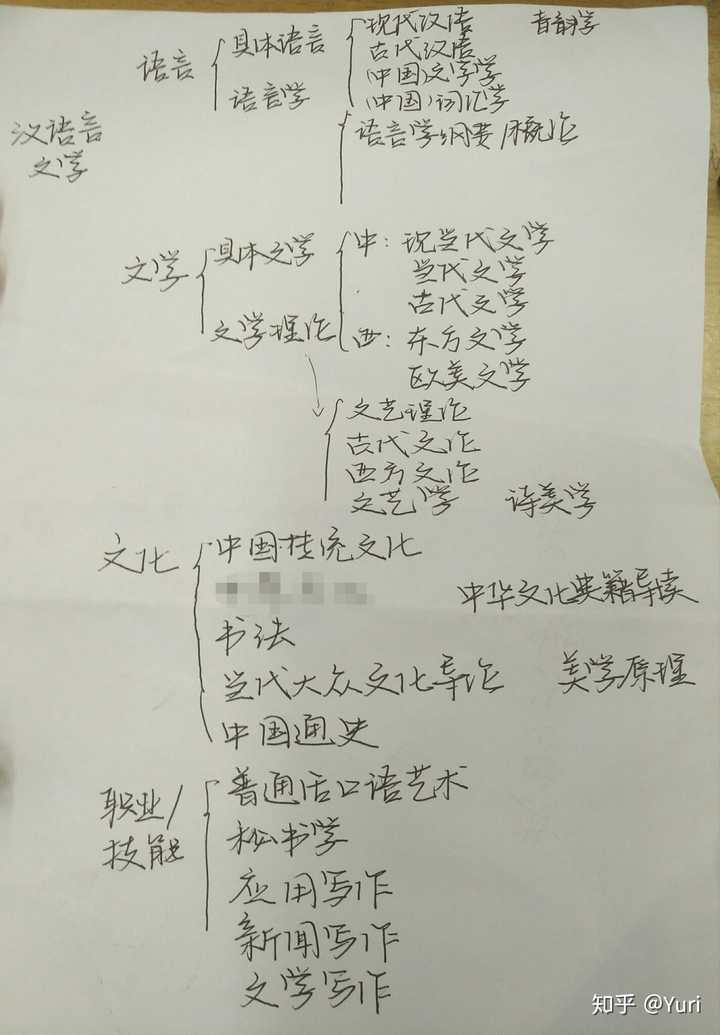 现代汉语 音韵学
具体语言
古代汉语
语言
(中国)文字学
语言学
(中国)词汇学
汉语言
文学
语言学纲要/概论
具体文学
中:现当代文学
文学
当代文学
古代文学
文学理论
西:东方文学
欧美文学
文艺理论
古代文论
西方文论
文艺学 诗美学
文化
中国传统文化
中华文化典籍导读
书法
当代大众文化导论 美学原理
中国通史
职业/
技能
普通话口语艺术
秘书学
应用写作
新闻写作
文学写作
知乎 @Yuri